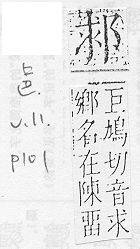 巨鳩切音求
鄉名在陳㽞
邑.
v.11.
p101